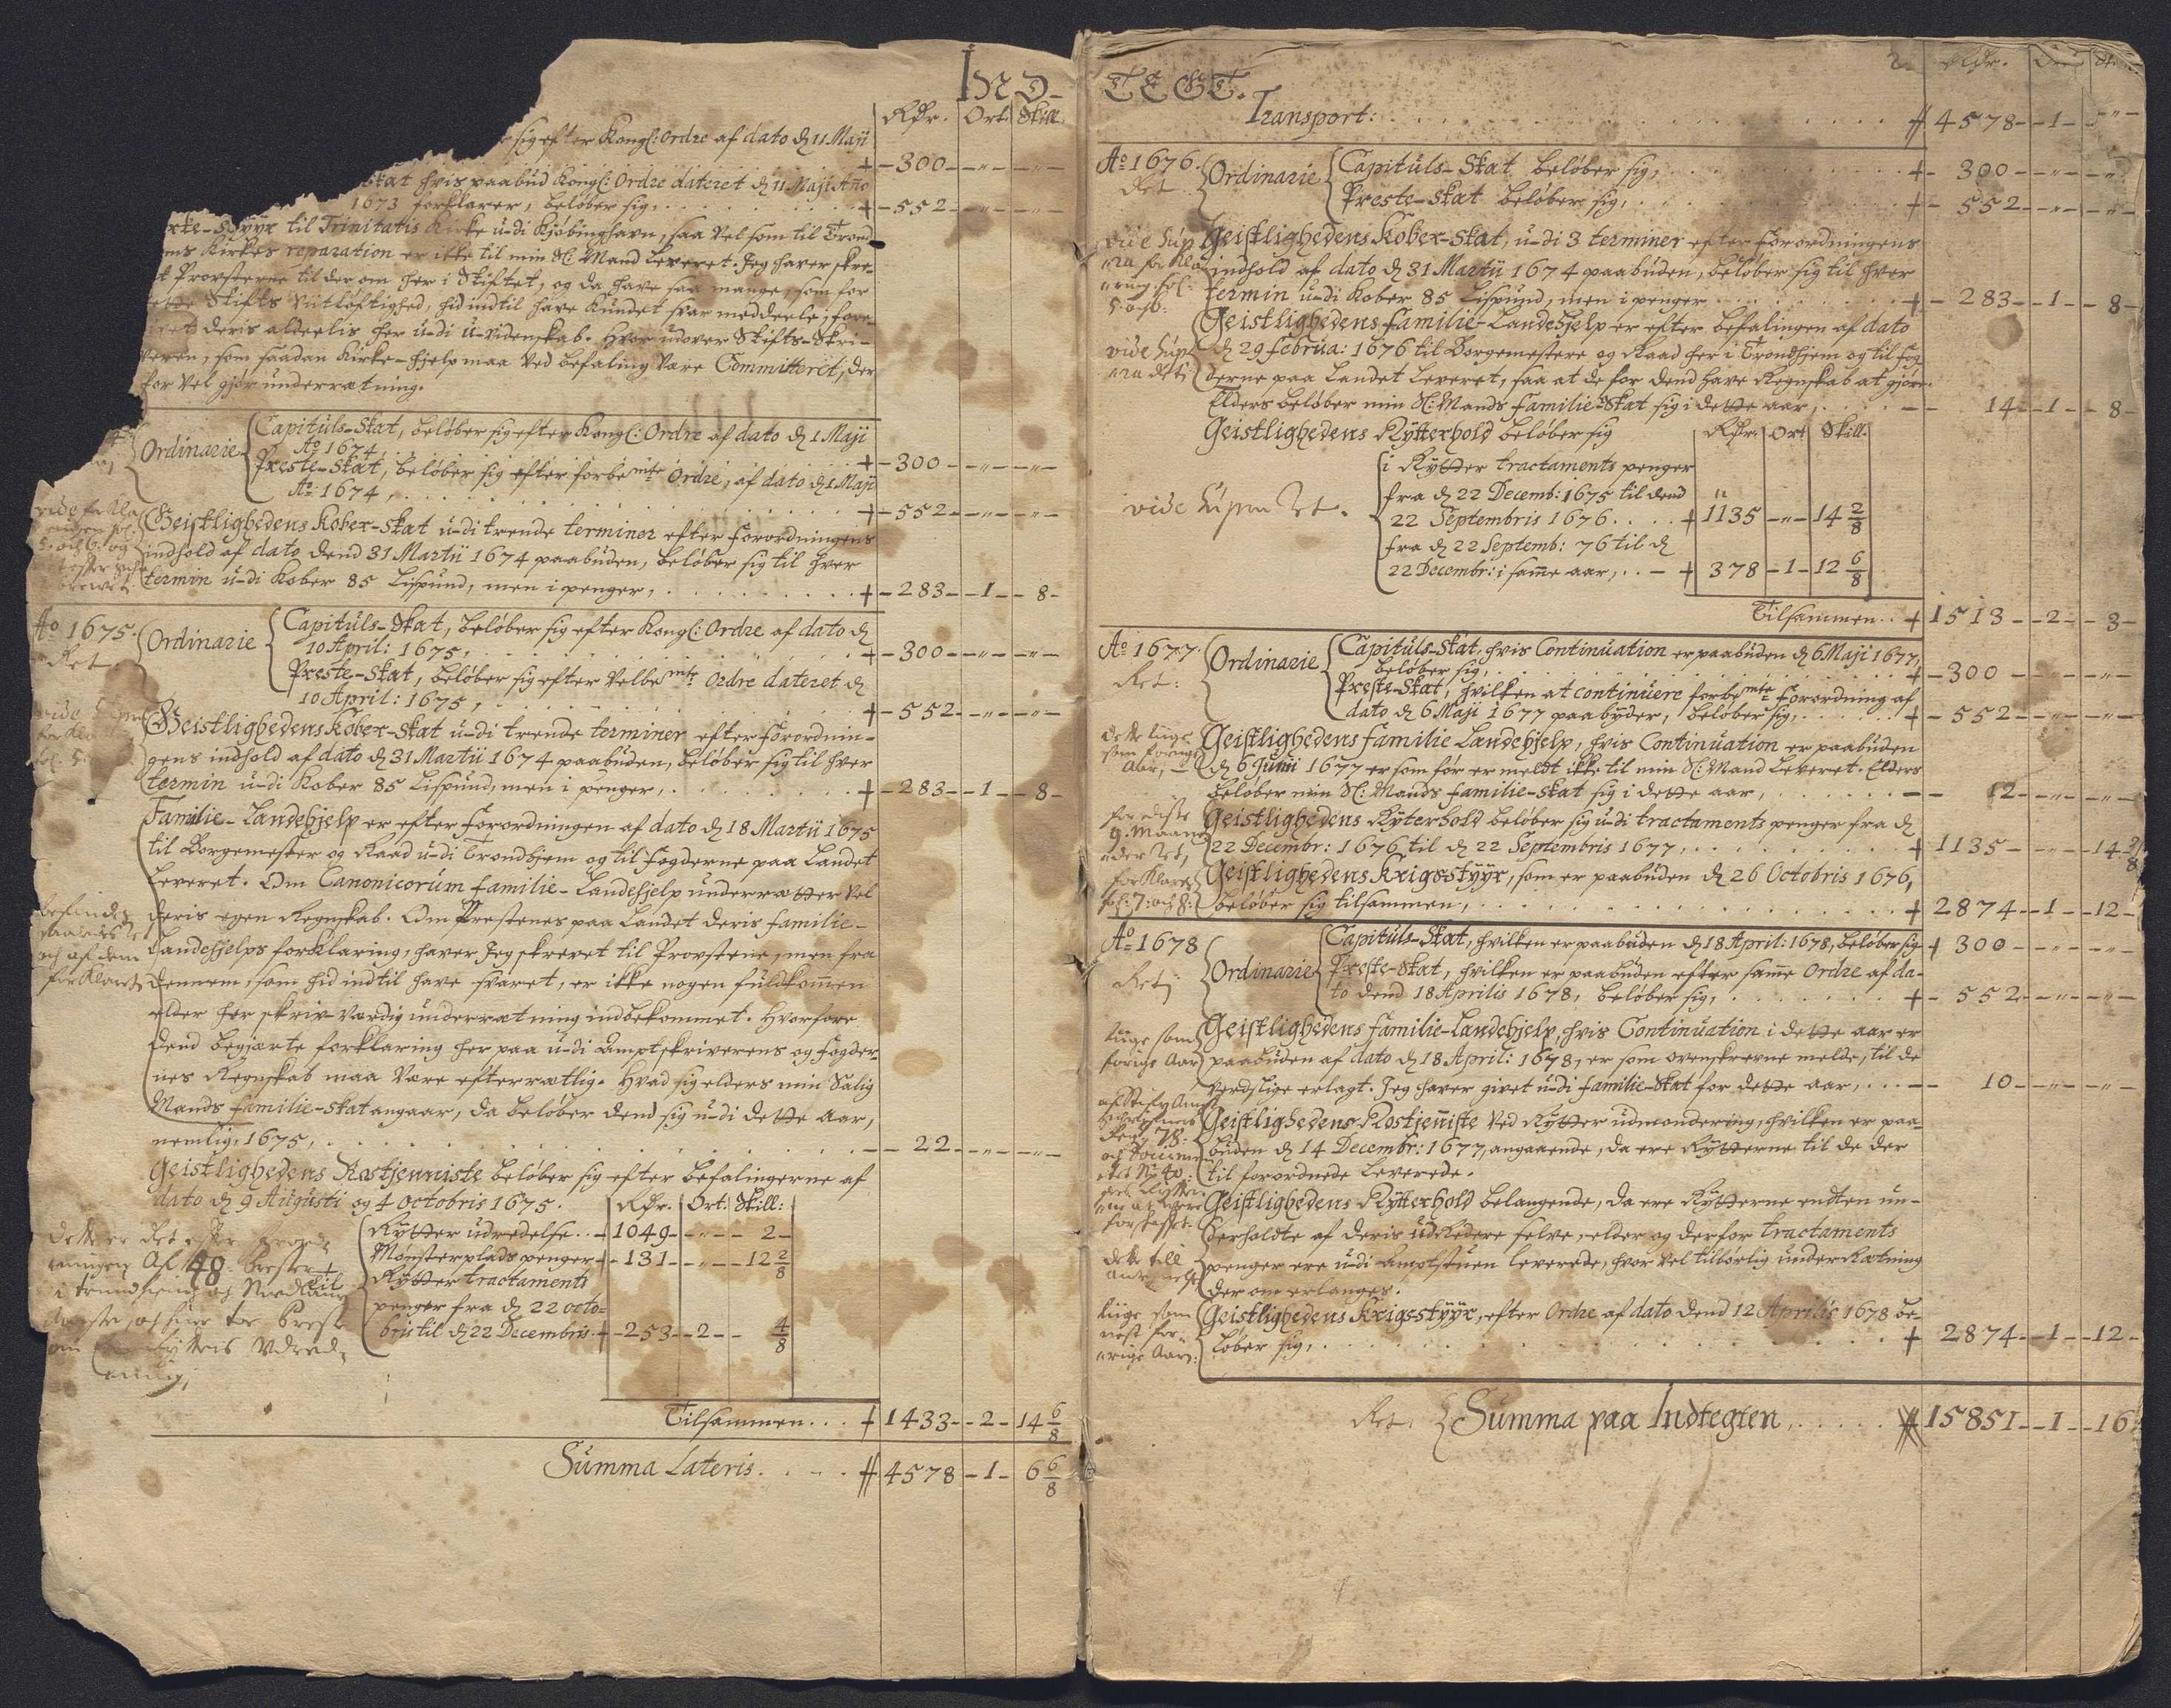 IND-
Rdr. Ort. Skill.
sig efter Kongl: Ordre af dato d 11 Maji
+ - 300 - -"- -"-
Skat hvis paabud Kongl: Ordre dateret d 11 Maji Año
1673 forklarer, beløber sig, . . . + - 552 - -"- -"-
Styyr til Trinitatis Kirke u-di Kjøbinghavn, saa vel som til Trond
ens Kirkes reparation er ikke til min Sl: Mand leveret. Jeg haver skre-
t Provsterne til der om her i Stiftet, og da have saa mange, som for
Stifts viitløftighed, hid indtil have kundet svar meddeele, fore-
deris aldeelis her u-di u-videnskab. Hvor udover Stifts-Skri-
veren, som saadan Kirke-hjelp maa ved befaling være Committeret, der
for vel gjør underrætning.
Ordinarie
Capituls-Skat, beløber sig efter Kongl: Ordre af dato d 1 Maji
Ao 1674, . . . + - 300 - -"- -"-
Preste-Skat, beløber sig efter forbemte Ordre, af dato d 1 Maji
Ao 1674, . . . + - 552 - -"- -"-
Geistlighedens Kober-Skat u-di trende terminer efter forordningens
indhold af dato dend 31 Martii 1674 paabuden, beløber sig til hver
termin u-di Kober 85 Lispund, men i penger, . . . + - 283 - -1- - 8-
Ao 1675.
Ret
Ordinarie
Capituls-Skat, beløber sig efter Kongl: Ordre af dato d
10 April: 1675, . . . + - 300 - -"- -"-
Preste-Skat, beløber sig efter velbemte Ordre dateret d
10 April: 1675, . . . + - 552 - -"- -"-
Geistlighedens Kober-Skat u-di trende terminer efter forordnin-
gens indhold af dato d 31 Martii 1674 paabuden, beløber sig til hver
termin u-di Kober 85 Lispund, men i penger, . . . + - 283 - -1- - 8-
Familie-Landehjelp er efter forordningen af dato d 18 Martii 1675
til Borgemester og Raad u-di Trondhjem og til fogderne paa Landet
leveret. Om Canonicorum familie-Landehjelp underrætter vel
deris egen Regnskab. Om Prestenes paa Landet deris familie-
Landehjelps forklaring, haver Jeg skrevet til Provstene, men fra
dennem, som hid indtil have svaret, er ikke nogen fuldkom̃en
elder her skriv-værdig underrætning indbekommet. Hvorfore
dend begjærte forklaring her paa u-di Amptskriverens og fogder-
nes Regnskab maa være efterrætlig. Hvad sig elders min Salig
Mands familie-skat angaar, da beløber dend sig u-di dette Aar,
nemlig, 1675, . . . - 22 - -"- -"-
Geistlighedens Rostjenniste beløber sig efter befalingerne af
dato d 9 Augusti og 4 Octobris 1675.
Rdr. Ort: Skill:
Rytter udredelse . . - 1049 - -"- - 2 -
Mønsterplads penger + - 131 - -"- - 12 2/8
Rytter tractaments
penger fra d 22 octo-
bris til d 22 Decembris + - 253 - -2- - 4/8
Tilsammen . . . + 1433 - -2- 14 6/8
Summa Lateris. . . . # 4578 - 1 - 6 6/8
TEGT.
2
Rdr. Ort Sk
Transport: . . . # 4578 - -1- -"-
Ao 1676.
Ret
Ordinarie
Capituls-Skat beløber sig, . . . + - 300 - -"- -"-
Preste-Skat beløber sig, . . . + - 552 - -"- -"-
Geistlighedens Kober-Skat, u-di 3 terminer efter forordningens
indhold af dato d 31 Martii 1674 paabuden, beløber sig til hver
termin u-di Kober 85 Lispund, men i penger . . . + - 283 - -1- - 8-
Geistlighedens familie-Landehjelp er efter befalingen af dato
d 29 februa: 1676 til Borgemestere og Raad her i Trondhjem og til fog
derne paa Landet leveret, saa at de for dend have Regnskab at gjøre.
Elders beløber min Sl: Mands familie-Skat sig i dette aar, . . . - 14 - -1- - 8-
Geistlighedens Rytterhold beløber sig
Rdr. Ort Skill:
i Rytter tractaments penger
fra d 22 Decemb: 1675 til dend
22 Septembris 1676. . . . + 1135 - -"- 14 2/8
fra d 22 Septemb: 76 til d
22 Decembr: i sam̃e aar, . . - + 378 - 1 - 12 6/8
Tilsammen. . + 1513 - -2- - 3-
Ao 1677.
Ret:
Ordinarie
Capituls-Skat, hvis Continuation er paabuden d 6 Maji 1677,
beløber sig, . . . + - 300 - -"- -"-
Preste-Skat, hvilken at continuere forbemte forordning af
dato d 6 Maji 1677 paabyder, beløber sig, . . . + - 552 - -"- -"-
Geistlighedens familie Landehjelp, hvis Continuation er paabuden
d 6 Junii 1677 er som før er meldt ikke til min Sl: Mand leveret. Elders
beløber min Sl: Mands familie-skat sig i dette aar, . . . - 12 - -"- -"-
Geistlighedens Ryterhold beløber sig u-di tractaments penger fra d
22 Decembr: 1676 til d 22 Septembris 1677, . . . + 1135 - -"- 14 2/8
Geistlighedens Krigsstyyr, som er paabuden d 26 Octobris 1676,
beløber sig tilsammen, . . . + 2874 - -1- -12-
Ao 1678
Ret
Ordinarie
Capituls-Skat, hvilken er paabuden d 18 April: 1678, beløber sig + 300 - -"- -"-
Preste-Skat, hvilken er paabuden efter sam̃e Ordre af da-
to dend 18 Aprilis 1678, beløber sig, . . . + - 552 - -"- -"-
Geistlighedens familie-Landehjelp, hvis Continuation i dette aar er
paabuden af dato d 18 April: 1678, er som ovenskrevne melde, til de
verdslige erlagt. Jeg haver givet u-di familie-Skat for dette aar, . . . - 10 - -"- -"-
Geistlighedens Rostjen̄iste ved Rytter udmondering, hvilken er paa-
buden d 14 Decembr: 1677, angaaende, da ere Rytterne til de der
til forordnede leverede.
Geistlighedens Rytterhold belangende, da ere Rytterne endten un-
derholdte af deris udredere selve, elder og derfor tractaments
penger ere u-di Amptstuen leverede, hvor vel tilbørlig underrætning
der om erlanges.
Geistlighedens Krigsstyyr, efter Ordre af dato dend 12 Aprilis 1678 be-
løber sig, . . . + 2874 - -1- -12-
Ret. Summa paa Indtegten, . . . # 15851 - -1- -16